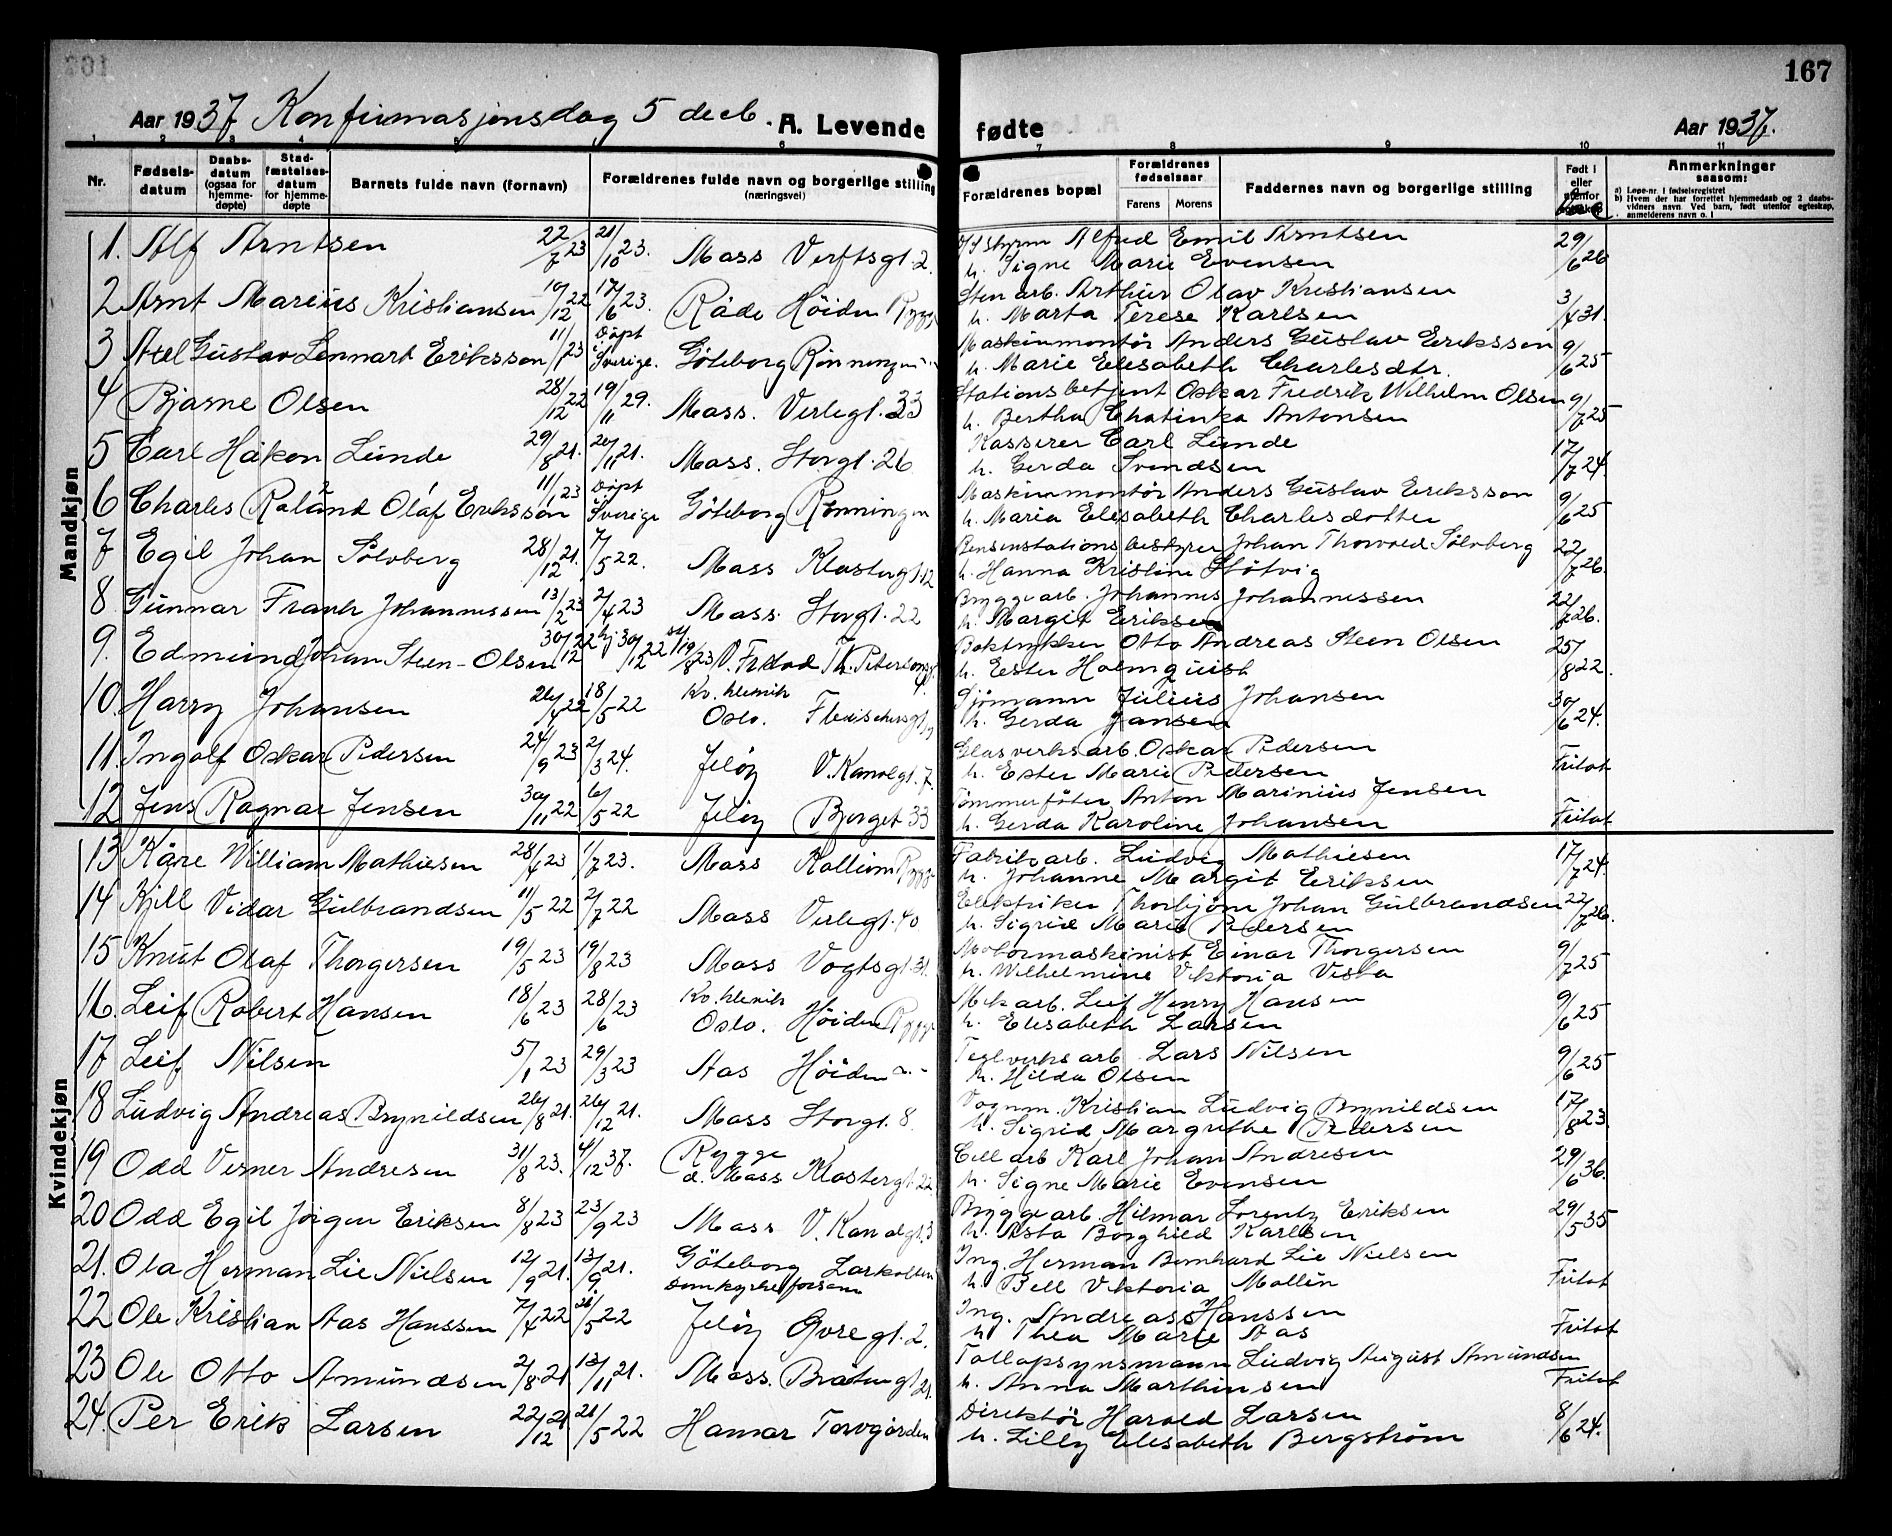 167
Aar 1937 Konfirmasjonsdag 5 decb. A. Levende fødte Aar 1937.
Nr. Fødselsdatum Daabsdatum (ogsaa for hjemmedøpte) Stadfæstelsesdatum for hjemmedøpte Barnets fulde navn (fornavn) Forældrenes fulde navn og borgerlige stilling (næringsvei) Forældrenes bopæl Forældrenes fødselsaar Farens Morens Faddernes navn og borgerlige stilling Født i eller utenfor egteskap Anmerkninger saasom:
a) Løpe-nr. i fødselsregistret
b) Hvem der har forrettet hjemmedaab og 2 daabsvidners navn. Ved barn, født utenfor egteskap, anmelderens navn o. l
Mandkjøn
1. Alf Arntsen 22/7 23 21/10 23. Moss Verftsgt. 2. Alfred Emil Arntsen 29/6 26
h. Signe Marie Evensen
2 Arnt Marius Kristiansen 10/12 22 17/6 23. Råde Höiden Rygge Sten arb. Arthur Olav Kristiansen 3/4 31.
h. Marta Terese Karlsen
3 Axel Gustav Lennart Eriksson 11/1 23 Döpt i Sverige. Göteborg Rönningen Maskinmontör Anders Gustav Eriksson 9/6 25
h. Marie Elesabeth Charlesdtr.
4 Bjarne Olsen 28/12 22 19/11 29. Moss. Verlegt. 33 Stationsbetjent Oskar Fredrik Wilhelm Olsen 9/7 25
h. Bertha Chatinka Antonsen
5 Carl Håkon Lunde 29/8 21. 20/11 21. Moss. Storgt. 26 Kasserer Carl Lunde 17/7 24.
h. Gerda Svendsen
6 Charles Roland Olof Eriksson 11/1 23 Döpt Sverige Göteborg Rönningen Maskinmontör Anders Gustav Eriksson 9/6 25
h. Maria Elesabeth Charlesdotter
7 Egil Johan Sölvberg 28/12 21. 7/5 22. Moss Klostergt. 12 Bensinstationsbestyrer Johan Thorvald Sölvberg 22/7 26.
h. Hanna Kristine Stötvig
8. Gunnar Frank Johannessen 13/2 23 2/4 23 Moss. Storgt. 22 Bryggearb. Johannes Johannessen 22/7 26.
h. Margit Eriksen
9. Edmund Johan Steen-Olsen 30/12 22 hj. 30/12 22 st. 19/8 23 V. Fredad Th. Petersonsgt. 4. Boktrykker Otto Andreas Steen Olsen 25/8 22.
h. Ester Holmquist
10. Harry Johansen 26/4 22 18/5 22 Kv. klinik Oslo. Fleischersgt. Sjömann Julius Johansen 30/6 24.
h. Gerda Jansen
11. Ingolf Oskar Pedersen 24/9 23 2/3 24. Jelöy V. Kanalgt. 7. Glasverksarb. Oskar Pedersen Fritat
h. Ester Marie Pedersen
12 Jens Ragnar Jensen 30/11 22 6/5 22 Jelöy Bjerget 33 Tömmerföter Anton Marinius Jensen Fritat
h. Gerda Karoline Johansen
Kvindekjøn
13 Kåre William Mathiesen 28/4 23 1/7 23. Moss Kallum Rygge Fabrikarb. Ludvig Mathiesen 17/7 24.
h. Johanne Margit Eriksen
14 Kjell Vidar Gulbrandsen 11/5 22 2/7 22 Moss Verlegt. 40 Elektriker Thorbjørn Johan Gulbrandsen 22/7 26.
h. Sigrid Marie Pedersen
15 Knut Olaf Thorgersen 19/5 23 19/8 23 Moss Vogtsgt. 31. Motormaskinist Einar Thorgersen 9/7 25
h. Wilhelmine Viktoria Vista
16. Leif Robert Hansen 18/6 23 28/6 23 Kv. klinik Oslo. Höiden Rygge Mek arb. Leif Henry Hansen 9/6 25
h. Elisabeth Larsen
17 Leif Nilsen 5/1 23 29/3 23 Aas Höiden Teglverksarb Lars Nilsen 9/6 25
h. Hilda Olsen
18 Ludvig Andreas Brynildsen 26/8 21. 26/12 21. Moss Storgt. 8. Vognm. Kristian Ludvig Brynildsen 17/8 23.
h. Sigrid Margrethe Pedersen
19 Odd Verner Andresen 31/8 23. 4/12 37. Rygge d. Moss Klostergt. 22 Cell arb Karl Johan Andresen 29/6 36.
h. Signe Marie Evensen
20 Odd Egil Jörgen Eriksen 8/8 23 23/9 23 Moss V. Kanalgt. 3 Bryggearb. Hilmar Lorentz Eriksen 29/5 35
h. Asta Borghild Karlsen
21. Ola Herman Lie Nielsen 12/9 21. 13/9 21. Göteborg Domkyrkeforsam Larkollen Ing. Herman Bernhard Lie Nielsen Fritat
h. Bell Viktoria Mollin
22 Ole Kristian Aas Hanssen 7/4 22 21/5 22 Jelöy Övregt. 2. Ing. Andreas Hanssen Fritat
h. Thea Marie Aas
23 Ole Otto Amundsen 2/8 21 13/11 21. Moss. Bråtengt. 21. Tollopsynsmann Ludvig August Amundsen Fritat
h. Anna Marthinsen
24. Per Erik Larsen 22/12 21 21/5 22 Hamar Torvgården Direktör Harald Larsen 8/6 24.
h. Lilly Elesabeth Bergström